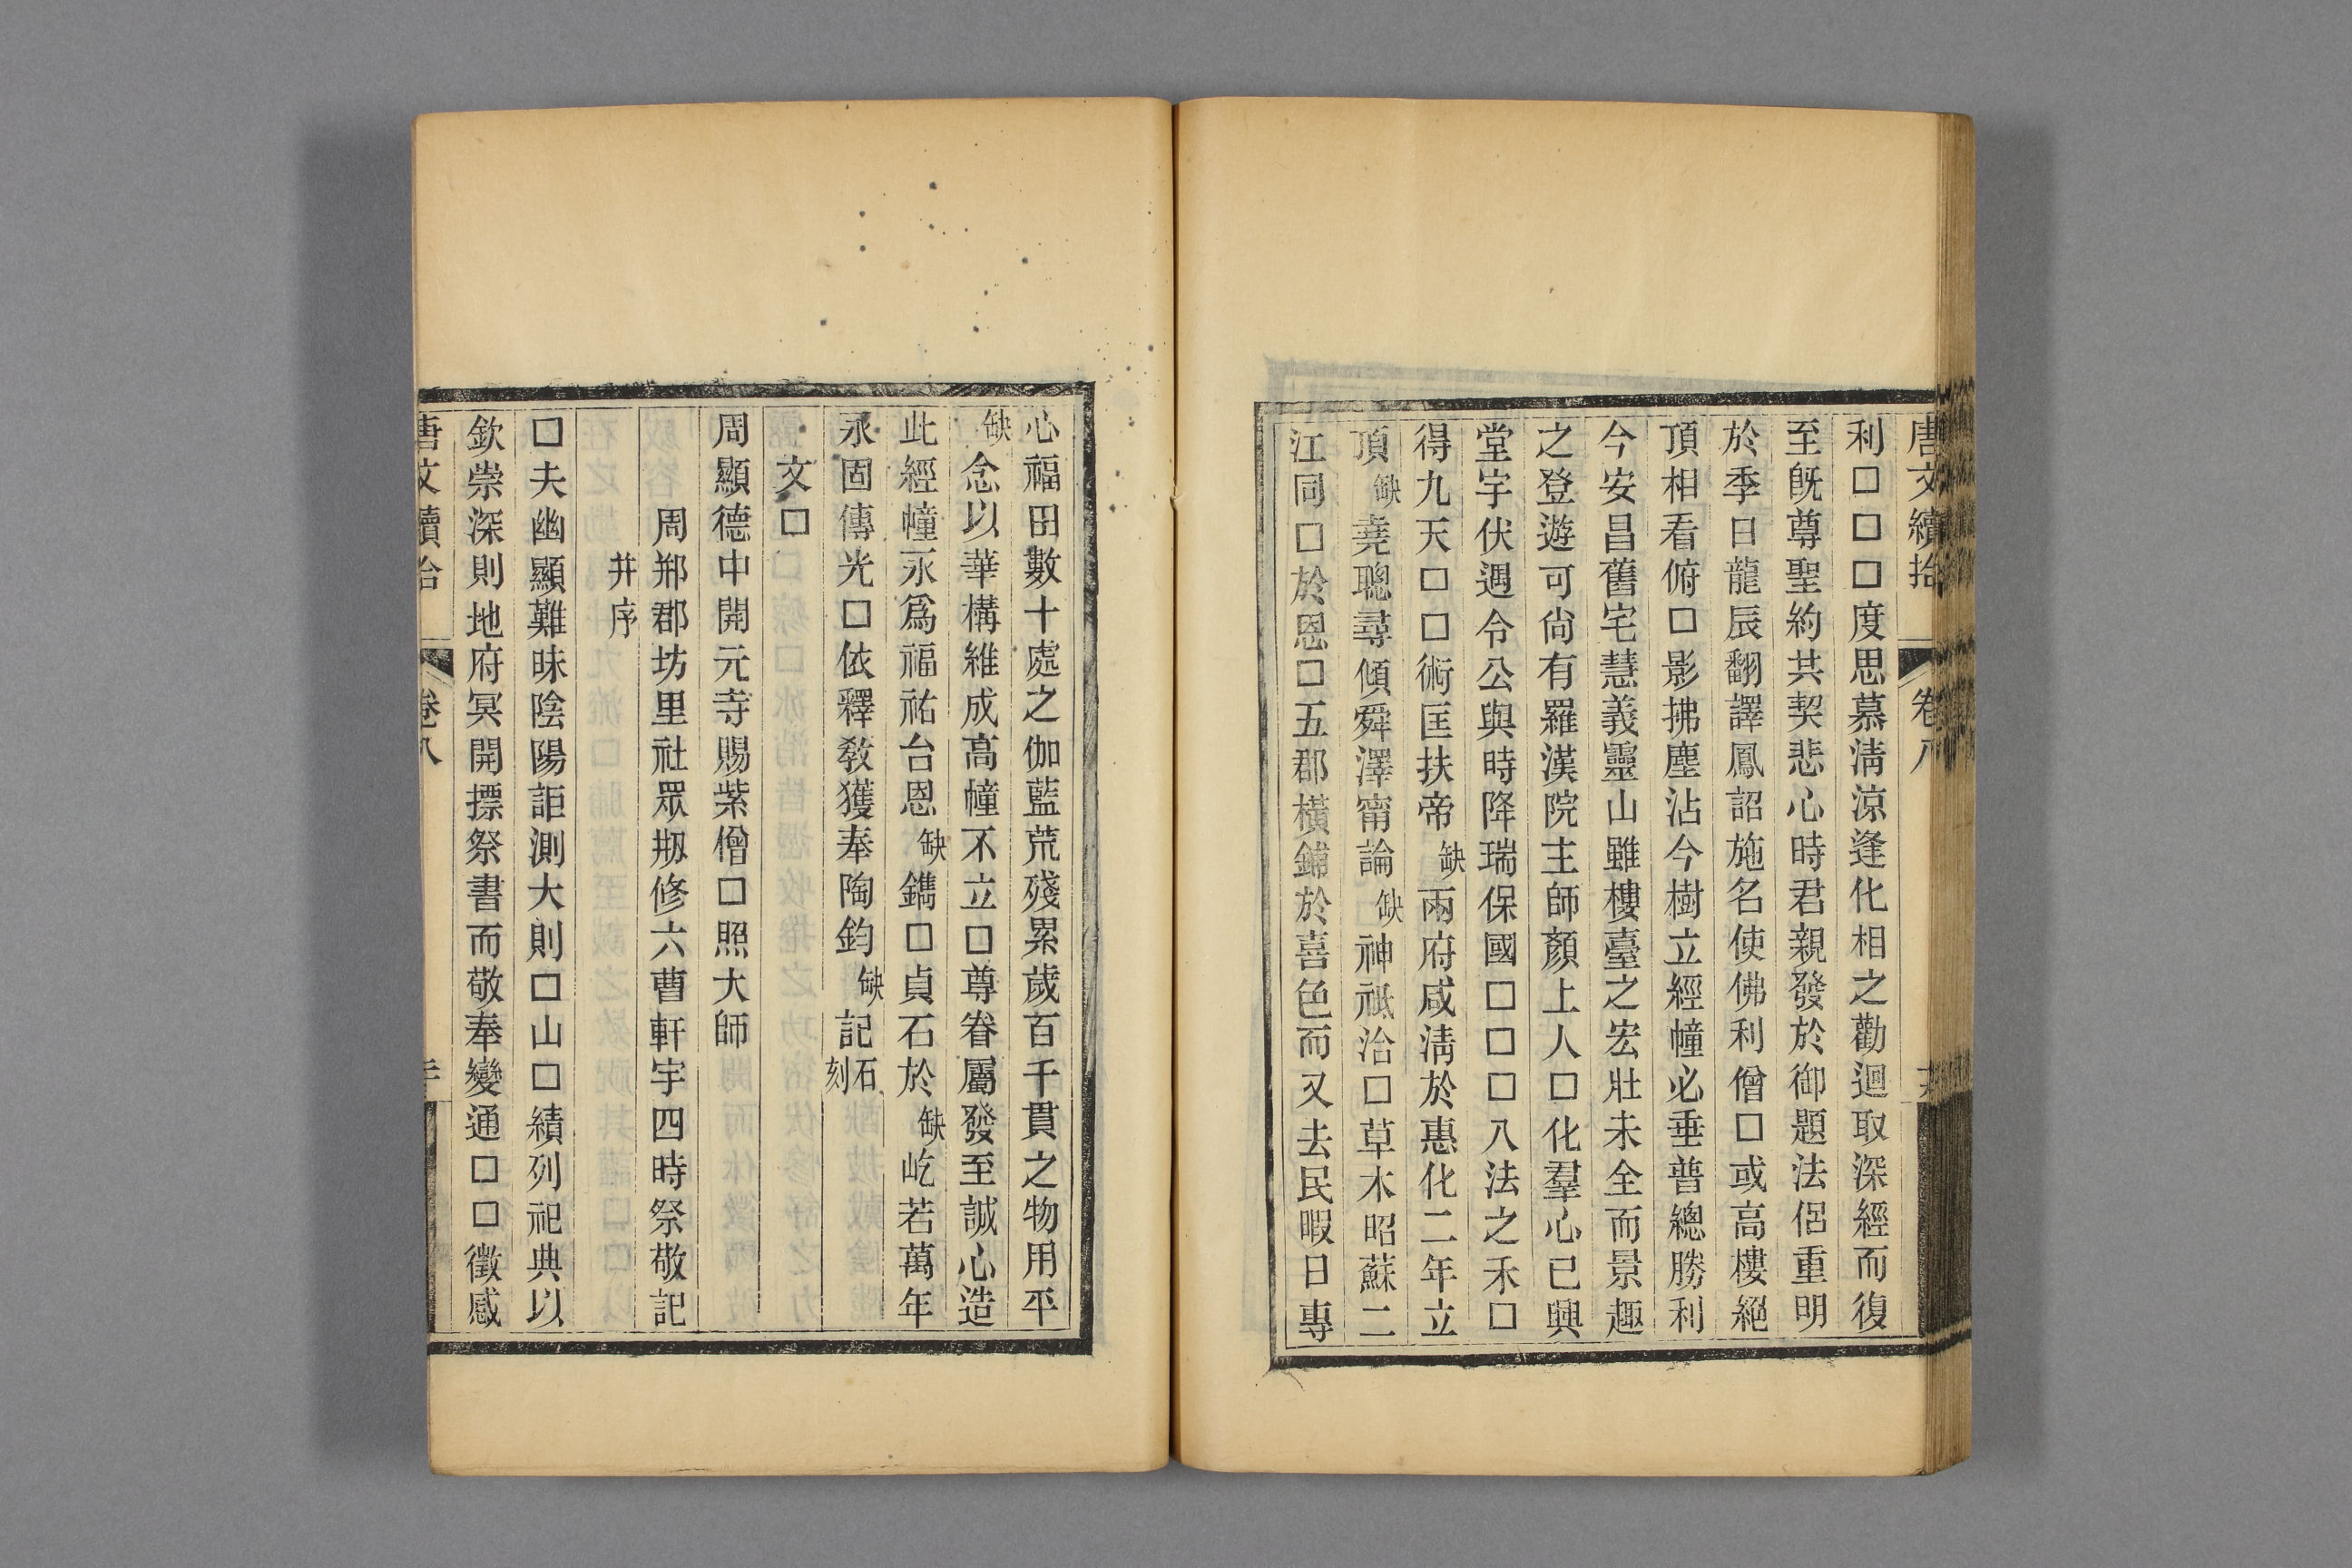 唐文續拾 卷八
利□□□度思慕淸涼逢化相之勸迴取深經而復
至旣尊聖約共契悲心時君親發於御題法侶重明
於季日龍辰翻譯鳳詔施名使佛利僧□或高樓絕
頂相看俯□影拂塵沾今樹立經幢必垂普總勝利
今安昌舊宅慧義靈山雖樓臺之宏壯未全而景趣
之登遊可尙有羅漢院主師顏上人□化羣心已興
堂宇伏遇令公與時降瑞保國□□□八法之禾□
得九天□□術匡扶帝缺兩府咸淸於惠化二年立
頂缺堯聰尋傾舜澤甯論缺神祇洽□草木昭蘇二
江同□於恩□五郡橫鋪於喜色而又去民暇日專
心福田數十處之伽藍荒殘累歲百千貫之物用平
缺念以華構維成高幢不立□尊眷屬發至誠心造
此經幢永爲福祐台恩缺鐫□貞石於缺屹若萬年
永固傳光□依釋敎獲奉陶鈞缺記石刻
文□
周顯德中開元寺賜紫僧□照大師
周郱郡坊里社眾刱修六曹軒宇四時祭敬記
幷序
□夫幽顯難昧陰陽詎測大則□山□績列祀典以
欽崇深則地府冥開摽祭書而敬奉變通□□徵感
唐文續拾 卷八